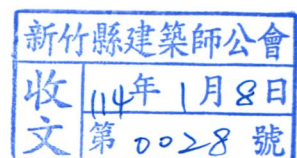 新竹縣建築師公會
收文
114年1月8日
第0028號